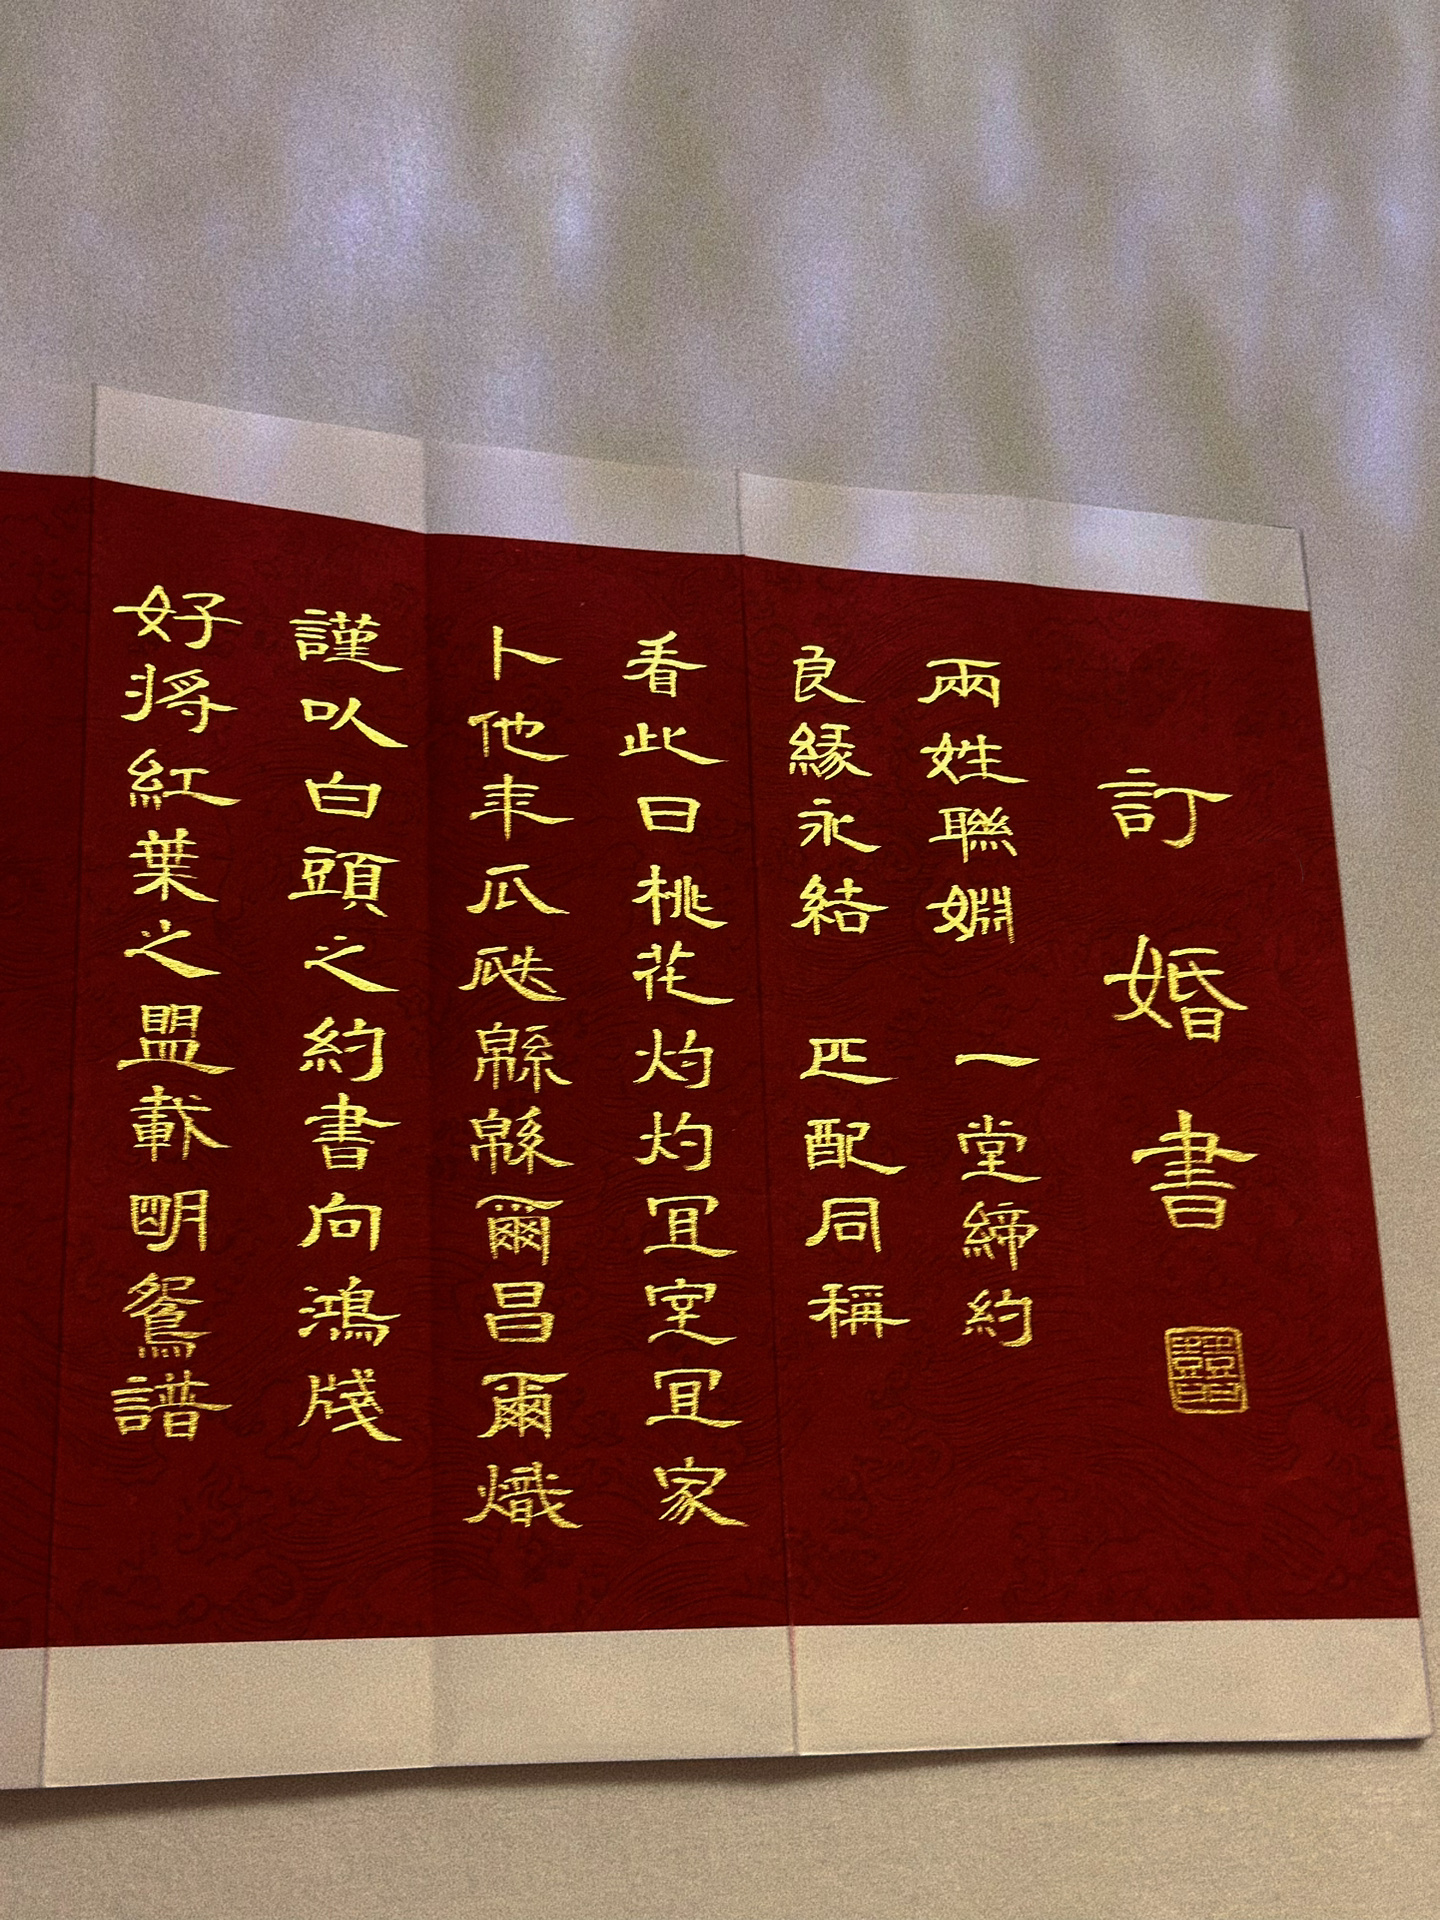 訂婚書
囍
兩姓聯婣 一堂締約
良緣永結 匹配同稱
看此日桃花灼灼宜室宜家
卜他年瓜瓞緜緜爾昌爾熾
謹以白頭之約書向鴻牋
好將紅葉之盟載明鴛譜